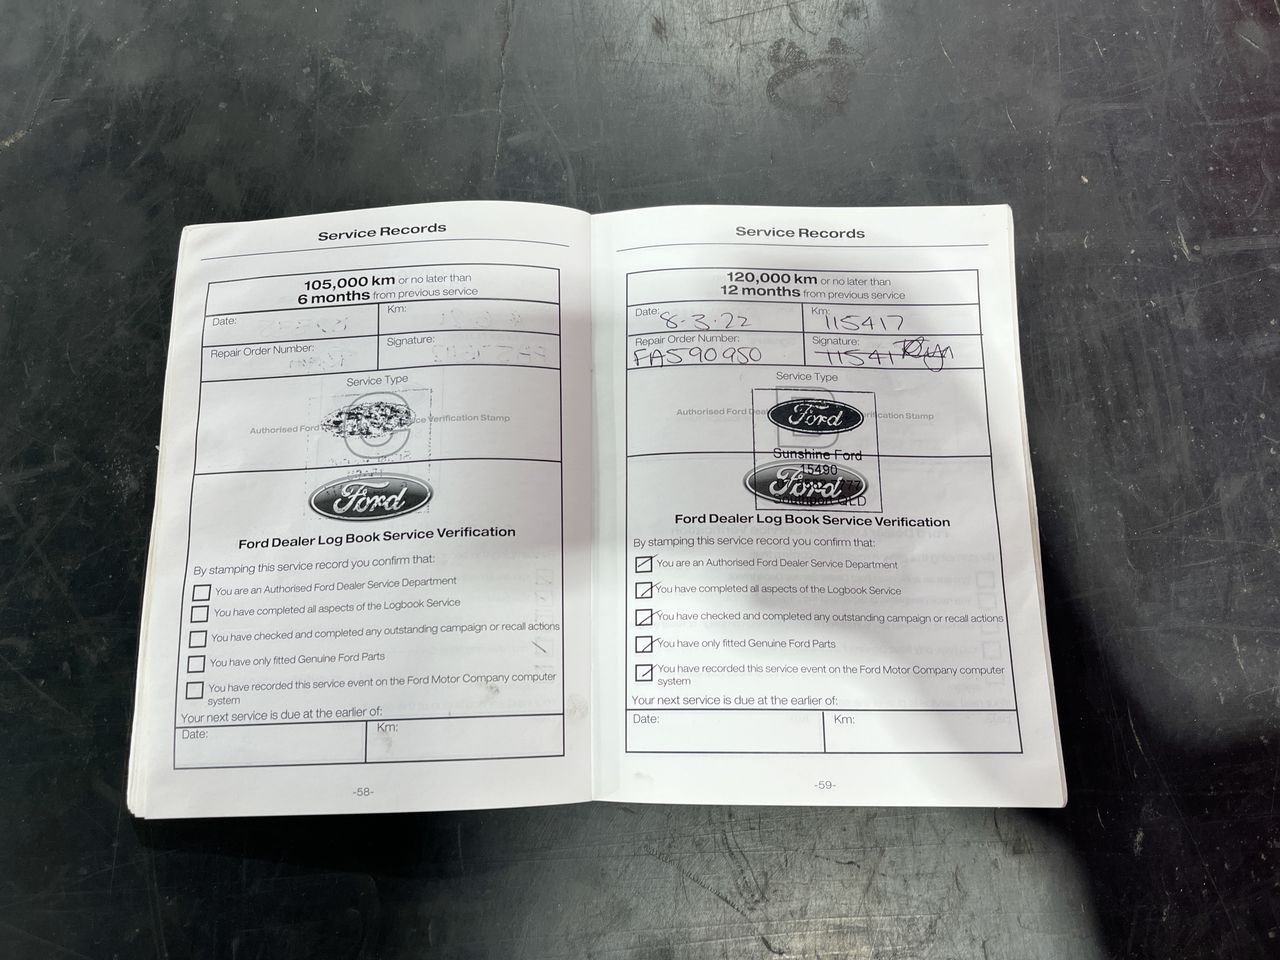 Service Records
105,000 km or no later than
6 months from previous service
Date:
Km:
Repair Order Number:
Signature:
Service Type
C
Authorised Ford ce Verification Stamp
Ford
Ford Dealer Log Book Service Verification
By stamping this service record you confirm that:
You are an Authorised Ford Dealer Service Department
You have completed all aspects of the Logbook Service
You have checked and completed any outstanding campaign or recall actions
You have only fitted Genuine Ford Parts
You have recorded this service event on the Ford Motor Company computer
system
Your next service is due at the earlier of:
Date:
Km:
-58-
Service Records
120,000 km or no later than
12 months from previous service
Date: 8.3.22
Km: 115417
Repair Order Number: FA590950
Signature: 11541
Service Type
Authorised Ford Deal rification Stamp
Ford
Sunshine Ford
15490
Ford
Ford Dealer Log Book Service Verification
By stamping this service record you confirm that:
You are an Authorised Ford Dealer Service Department
You have completed all aspects of the Logbook Service
You have checked and completed any outstanding campaign or recall actions
You have only fitted Genuine Ford Parts
You have recorded this service event on the Ford Motor Company computer
system
Your next service is due at the earlier of:
Date:
Km:
-59-